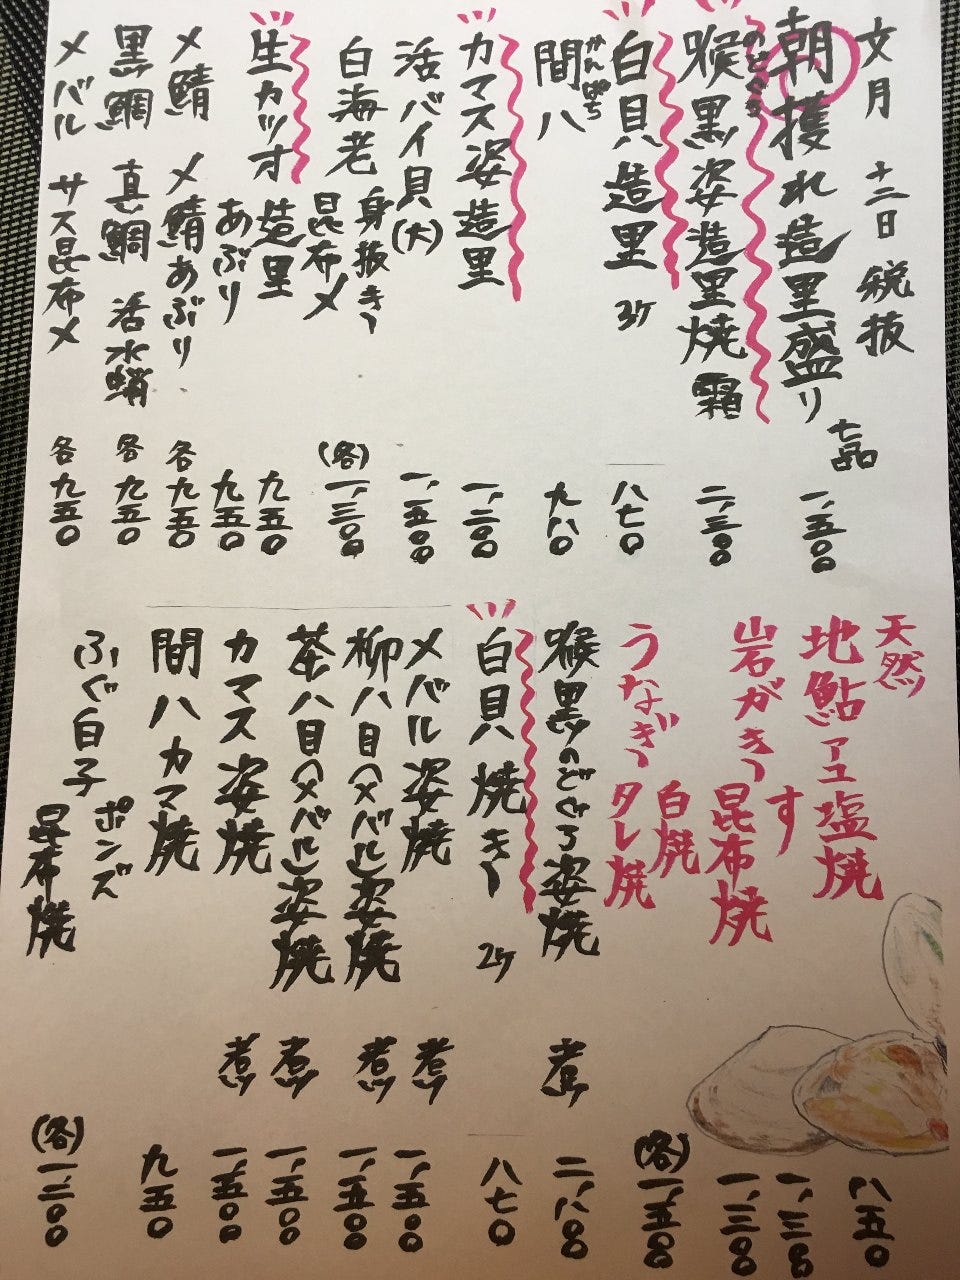 文月 十二日 税抜
朝獲れ造里盛り 七品 一、五〇〇
喉黒姿造里焼霜 二、三〇〇
のどぐろ
白貝造里 3ケ 八七〇
かんぱち
間八 九八〇
カマス姿造里 一、二〇〇
活バイ貝(大) 一、五〇〇
白海老 身抜き 昆布〆 (各)一、三〇〇
生カツオ造里 九五〇
あぶり 九五〇
〆鯖 〆鯖あぶり 各九五〇
黒鯛 真鯛 活水蛸 各九五〇
メバル サス昆布〆 各九五〇
天然
地鮎アユ塩焼 八五〇
岩がき す 一、三〇〇
昆布焼 一、三〇〇
うなぎ 白焼 タレ焼 (各)一、五〇〇
喉黒のどぐろ姿焼 煮 二、八〇〇
白貝焼き 2ケ 八七〇
メバル姿焼 煮 一、五〇〇
柳八目(メバル)姿焼 煮 一、五〇〇
茶八目(メバル)姿焼 煮 一、五〇〇
カマス姿焼 煮 一、五〇〇
間八カマ焼 九五〇
ふぐ白子 ポンズ 昆布焼 (各)一、二〇〇